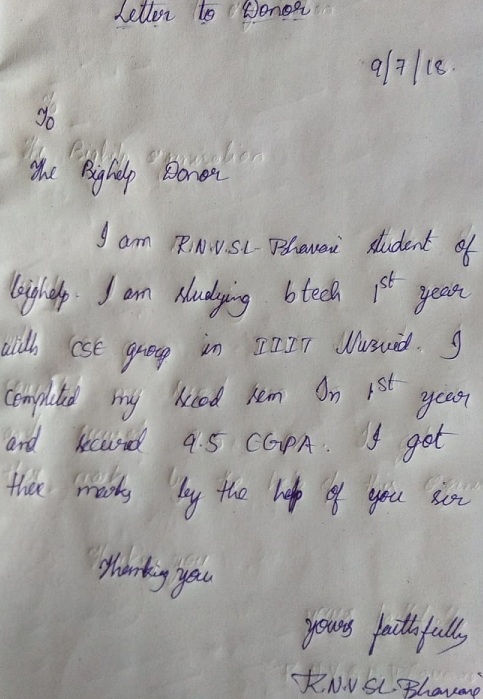 Letter to Donor
9/7/18.
To
The Bighelp Donor
I am R.N.V.S.L. Bhavani student of
bighelp. I am studying btech 1st year
with CSE group in IIIT Nuzvid. I
completed my secod sem In 1st year
and secured 9.5 CGPA. I got
thee marks by the help of you sir
Thanking you
yours faithfully
R.N.V.S.L. Bhavani